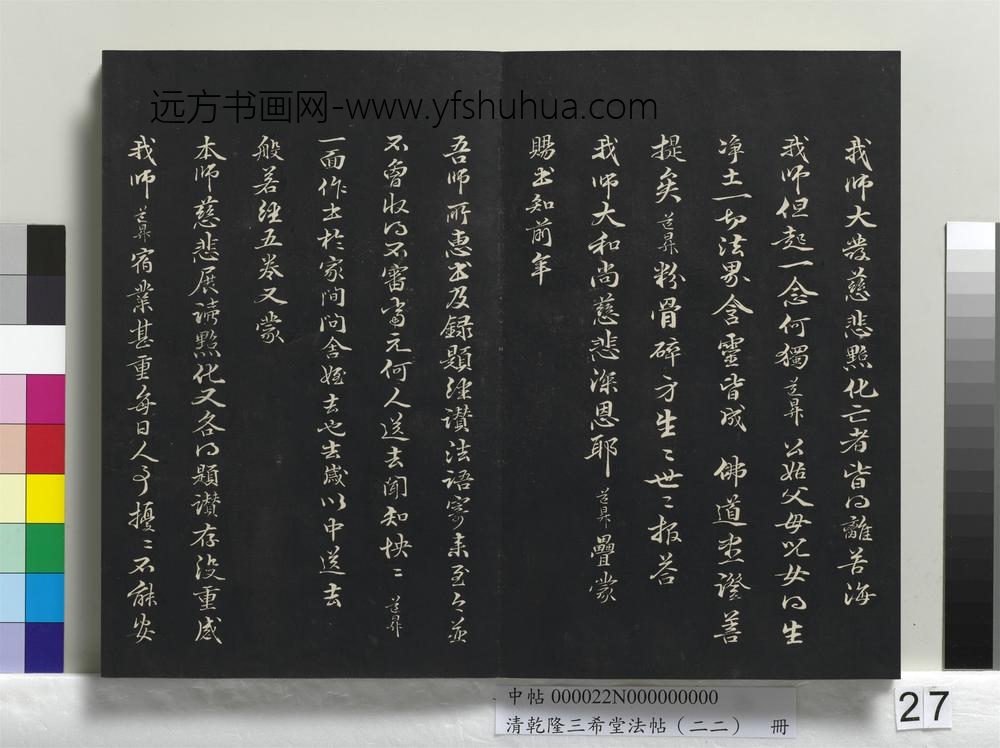 远方书画网-www.yfshuhua.com
我师大发慈悲點化亡者皆得離苦海
我师但起一念何獨道昇公姑父母兒女得生
净土一切法界含靈皆成 佛道悉證善
提矣道昇粉骨碎身生〻世〻报答
我师大和尚慈悲深恩耶道昇疊蒙
賜书知前年
吾师所惠书及録題经讃法语寄来至今并
不曾收得不審當元何人送去闻知怏〻道昇
一面作书於家间问舍姪去也去歲以中送去
般若经五卷又蒙
本师慈悲展读點化又各得題讃存没重感
我师道昇宿業甚重每日人事擾〻不能安
中帖 000022N000000000
清乾隆三希堂法帖（二二） 冊
27